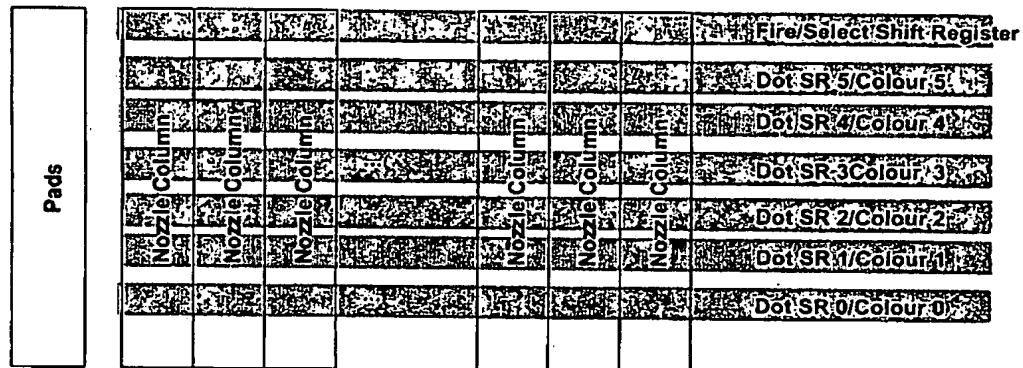 Pads
Nozzle Column
Nozzle Column
Nozzle Column
Nozzle Column
Nozzle Column
Nozzle Column
Fire/Select Shift Register
Dot SR 5/Colour 5
Dot SR 4/Colour 4
Dot SR-3Colour 3
Dot SR 2/Colour 2
Dot SR 1/Colour 1
Dot SR 0/Colour 0